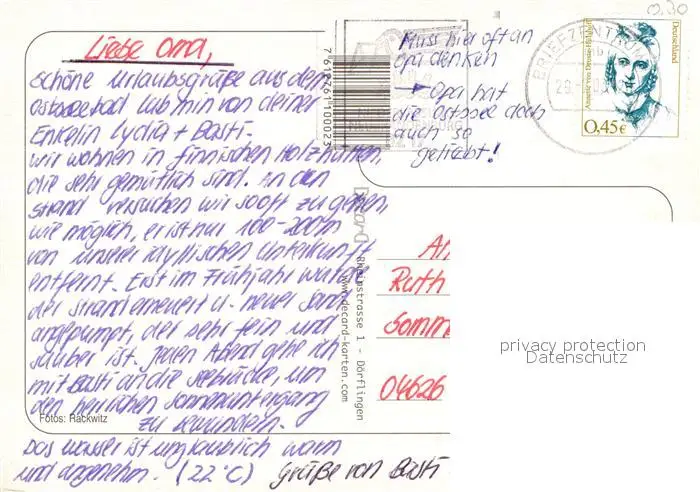 Liebe Oma,
schöne Urlaubsgrüße aus dem
Ostseebad Lubmin von deiner
Enkelin Lydia + Basti.
Wir wohnen in finnischen Holzhütten,
die sehr gemütlich sind. An den
Strand versuchen wir so oft zu gehen,
wie möglich, er ist nur 100-200m
von unserer idyllischen Unterkunft
entfernt. Erst im Frühjahr wurde
der Strand erneuert u. neuer Sand
angepumpt, der sehr fein und
sauber ist. Jeden Abend gehe ich
mit Basti an die Seebrücke, um
den herrlichen Sonnenuntergang
zu bewundern.
Das Wasser ist unglaublich warm
und angenehm. (22°C) Grüße von Basti
Fotos: Rackwitz
Muss hier oft an
Opa denken
→ Opa hat
die Ostsee doch
auch so
geliebt!
7612161100023
Decard
Rheinstrasse 1 - Dörflingen
www.decard-karten.com
BRIEFZENTRUM
29.
Deutschland
Annette von Droste-Hülshoff
0,45€
0.30
An
Ruth
Somm
04626
privacy protection
Datenschutz